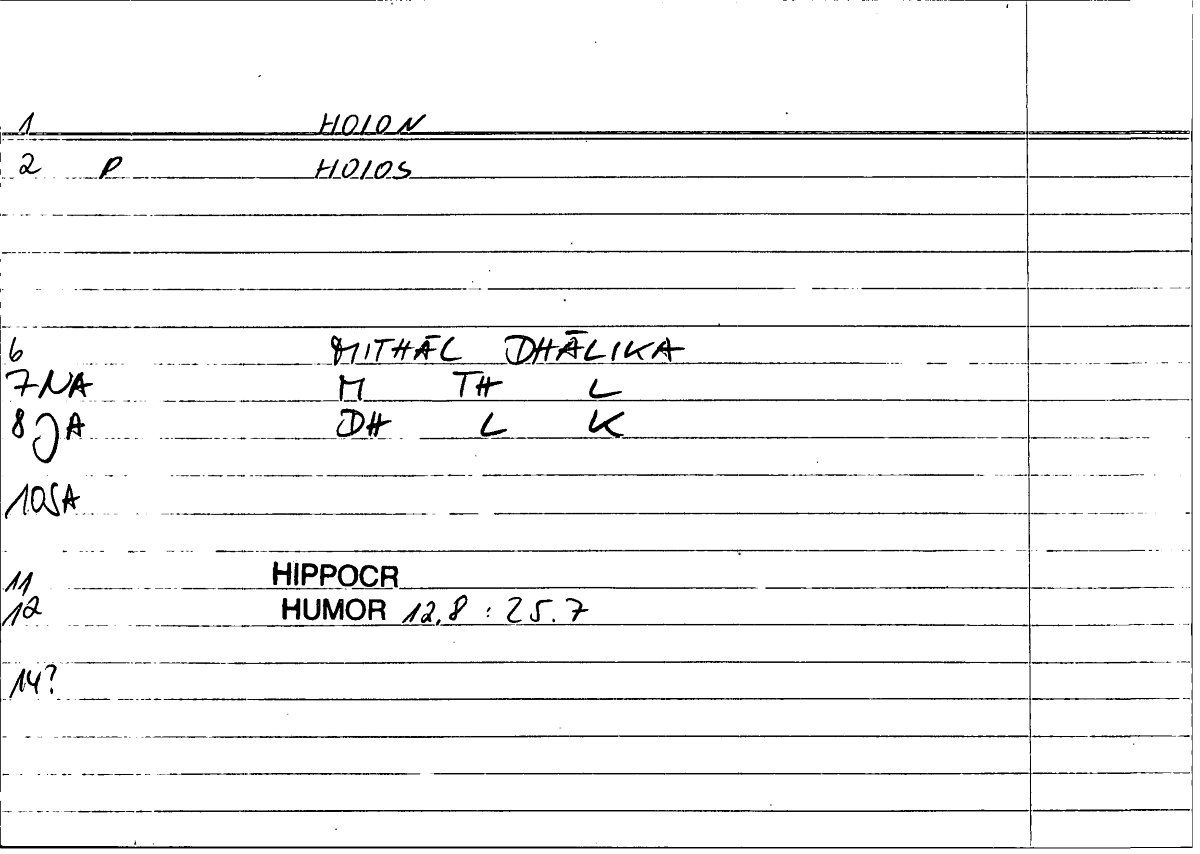 1 HOION
2 P HOIOS
6 MITHĀL DHĀLIKA
7NA M TH L
8JA DH L K
10SA
11 HIPPOCR
12 HUMOR 12,8 : 25.7
14?